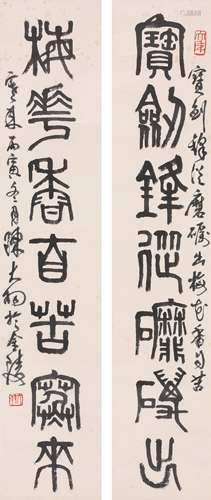 寶劍鋒從磨礪出梅花香自苦
寶劍鋒從磨礪出
梅華香自苦寒來
寒來丙寅冬月陳大羽於金陵